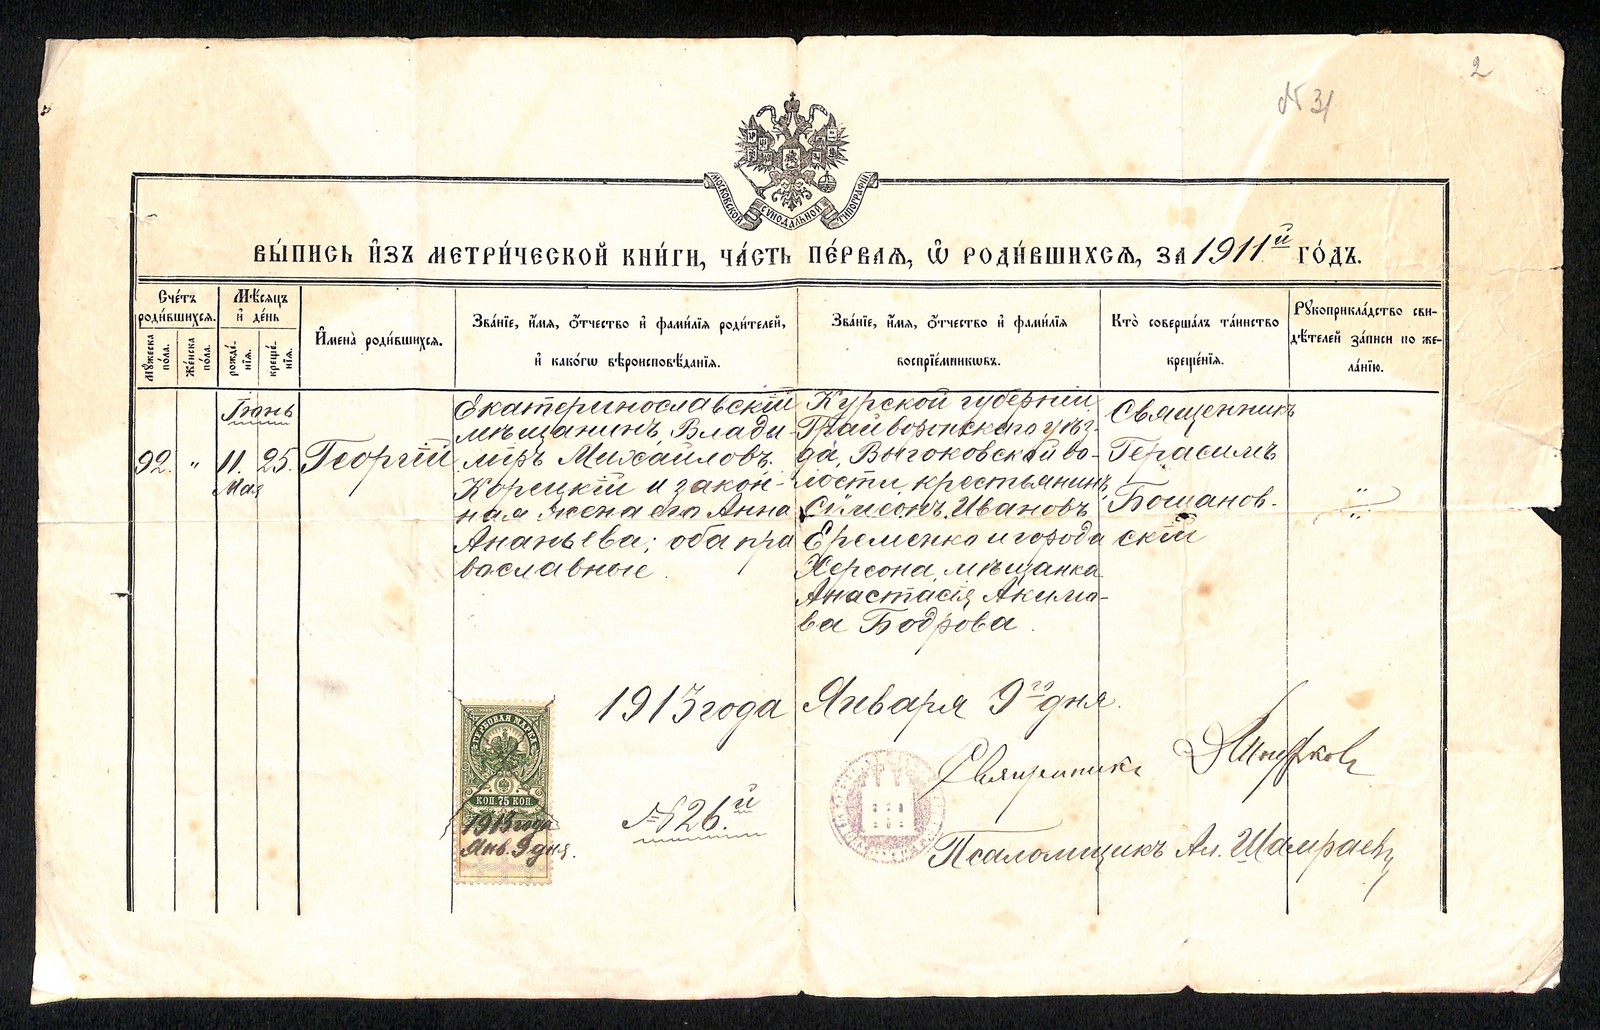 2
№ 31
МОСКОВСКОЙ СѴНОДАЛЬНОЙ ТИПОГРАФІИ
ВЫ́ПИСЬ И҆́ЗЪ МЕТРИ́ЧЕСКОЙ КНИ́ГИ, ЧА́СТЬ ПЕ́РВАѦ, Ѿ РОДИ́ВШИХСѦ, ЗА 1911й ГО́ДЪ.
Сче́тъ роди́вшихсѧ.
Мꙋ́жеска по́ла.
Же́нска по́ла.
Мѣ́сѧцъ и҆ де́нь
рожде́нїѧ.
креще́нїѧ.
И҆мена̀ роди́вшихсѧ.
Зва́нїе, и҆́мѧ, ѻ҆́тчество и҆ фами́лїѧ роди́телей,
и҆ како́гѡ вѣроисповѣ́данїѧ.
Зва́нїе, и҆́мѧ, ѻ҆́тчество и҆ фами́лїѧ
воспрїе́мникѡвъ.
Кто̀ соверша́лъ та́инство
креще́нїѧ.
Рꙋкоприкла́дство сви-
дѣ́телей за́писи по же-
ла́нїю.
92.
"
Іюнь
11.
Мая
25.
Георгій
Екатеринославскій
мѣщанинъ Влади-
миръ Михайловъ
Корецкій и закон-
ная жена его Анна
Ананьева; оба пра
вославные.
Курской губерніи
Грайворонскаго уѣз-
да, Высоковской во-
лости, крестьянинъ
Сѵмеонъ Ивановъ
Еременко и города
Херсона, мѣщанка
Анастасія Акимо-
ва Бодрова.
Священникъ
Герасимъ
Бошанов-
скій
"
1913 года Января 9го дня.
ГЕРБОВАЯ МАРКА
КОП. 75 КОП.
1913 года
Янв. 9 дня.
№ 26й
Священникъ
Псаломщикъ Ал. Шамраевъ